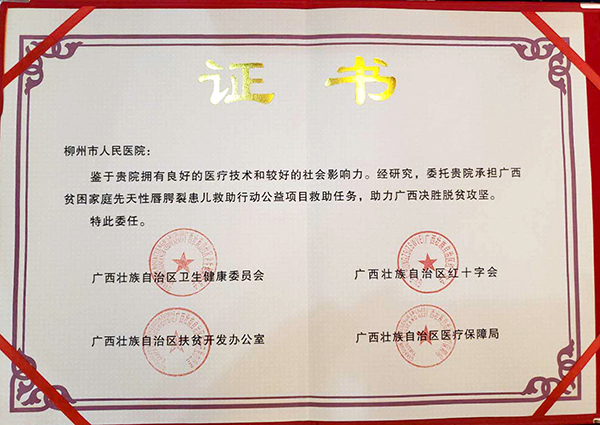 证书
柳州市人民医院：
鉴于贵院拥有良好的医疗技术和较好的社会影响力。经研究，委托贵院承担广西
贫困家庭先天性唇腭裂患儿救助行动公益项目救助任务，助力广西决胜脱贫攻坚。
特此委任。
广西壮族自治区卫生健康委员会
广西壮族自治区红十字会
广西壮族自治区扶贫开发办公室
广西壮族自治区医疗保障局